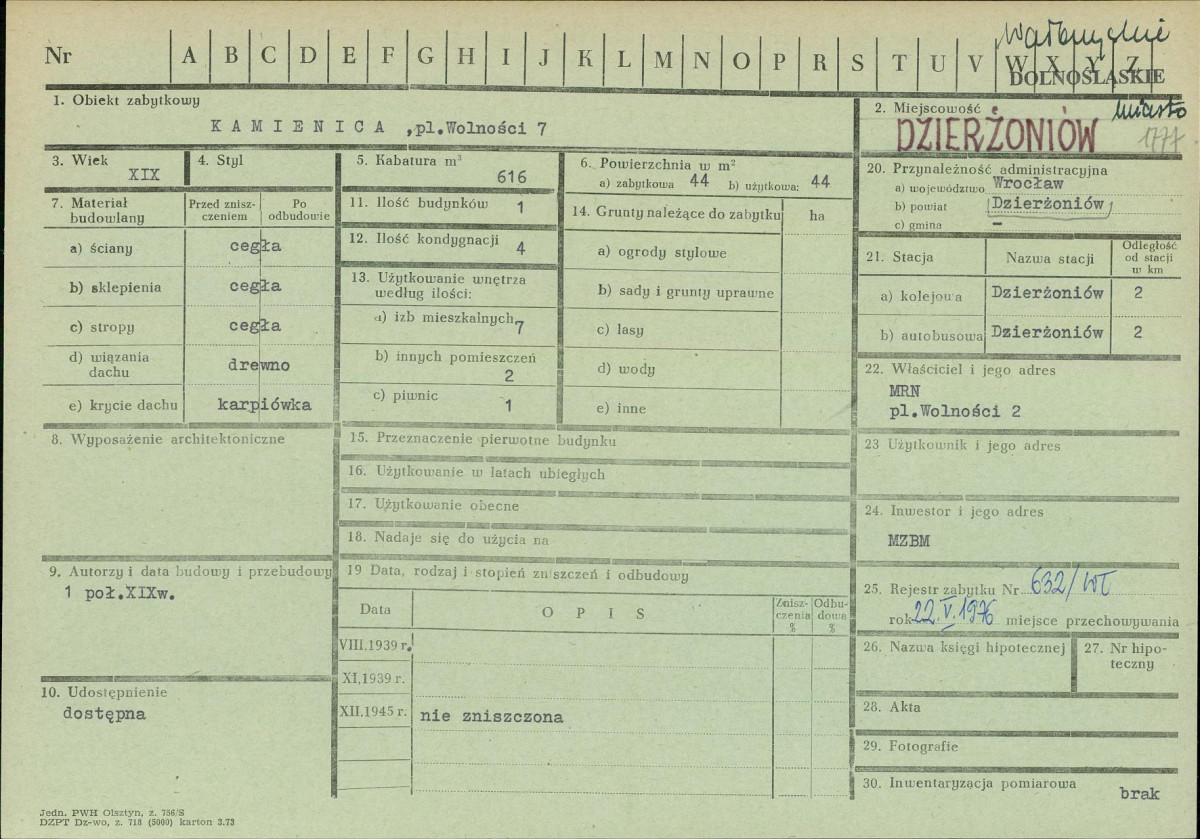 Wałbrzyskie
Nr A B C D E F G H I J K L M N O P R S T U V W X Y Z
DOLNOŚLĄSKIE
1. Obiekt zabytkowy
KAMIENICA ,pl.Wolności 7
2. Miejscowość miasto
DZIERŻONIÓW 1777
3. Wiek
XIX
4. Styl
5. Kabatura m³
616
6. Powierzchnia w m²
a) zabytkowa 44 b) użytkowa: 44
7. Materiał budowlany
Przed znisz-
czeniem
Po
odbudowie
a) ściany cegła
b) sklepienia cegła
c) stropy cegła
d) wiązania
dachu drewno
e) krycie dachu karpiówka
8. Wyposażenie architektoniczne
9. Autorzy i data budowy i przebudowy
1 poł.XIXw.
10. Udostępnienie
dostępna
11. Ilość budynków 1
12. Ilość kondygnacji 4
13. Użytkowanie wnętrza
według ilości:
a) izb mieszkalnych 7
b) innych pomieszczeń
2
c) piwnic 1
14. Grunty należące do zabytku ha
a) ogrody stylowe
b) sady i grunty uprawne
c) lasy
d) wody
e) inne
15. Przeznaczenie pierwotne budynku
16. Użytkowanie w latach ubiegłych
17. Użytkowanie obecne
18. Nadaje się do użycia na
19 Data, rodzaj i stopień zniszczeń i odbudowy
Data OPIS
Znisz-
czenia
%
Odbu-
dowa
%
VIII.1939 r.
XI.1939 r.
XII.1945 r. nie zniszczona
20. Przynależność administracyjna
a) województwo Wrocław
b) powiat Dzierżoniów
c) gmina –
21. Stacja Nazwa stacji
Odległość
od stacji
w km
a) kolejowa Dzierżoniów 2
b) autobusowa Dzierżoniów 2
22. Właściciel i jego adres
MRN
pl.Wolności 2
23 Użytkownik i jego adres
24. Inwestor i jego adres
MZBM
25. Rejestr zabytku Nr 632/Wł
rok 22.V.1976 miejsce przechowywania
26. Nazwa księgi hipotecznej
27. Nr hipo-
teczny
28. Akta
29. Fotografie
30. Inwentaryzacja pomiarowa
brak
Jedn. PWH Olsztyn, z. 756/S
DZPT Dz-wo, z. 718 (5000) karton 3.73